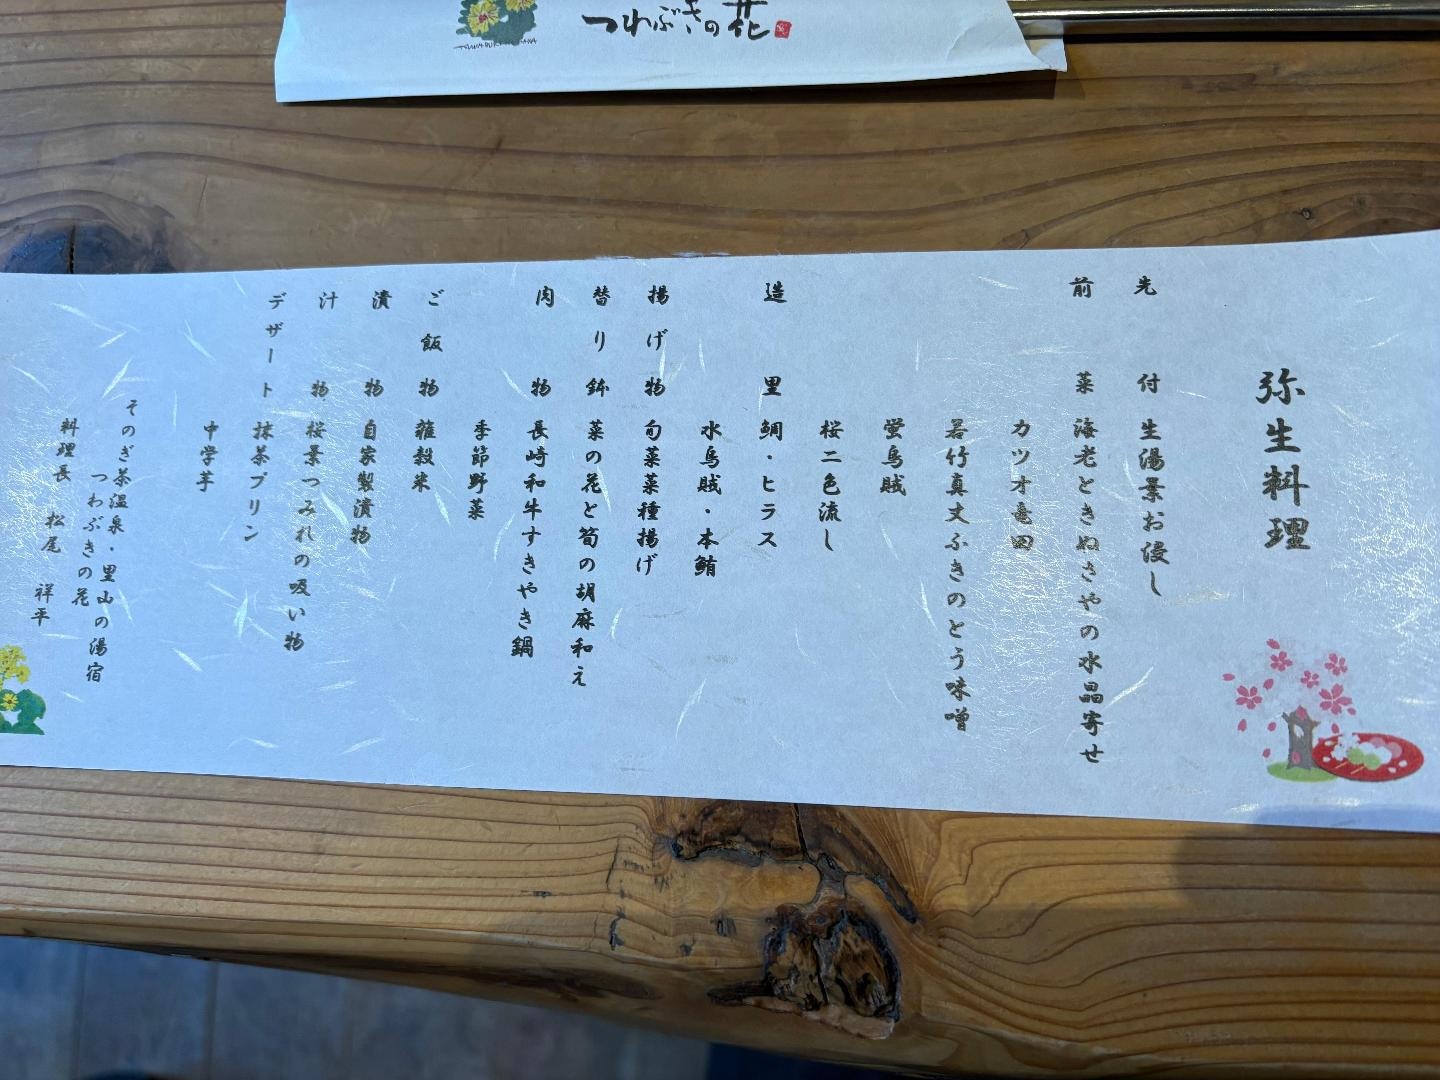 つわぶきの花
弥生料理
先付 生湯葉お浸し
前菜 海老ときぬさやの水晶寄せ
カツオ竜田
若竹真丈ふきのとう味噌
蛍烏賊
桜二色流し
造里 鯛・ヒラス
水烏賊・本鮪
揚げ物 旬菜菜種揚げ
替り鉢 菜の花と筍の胡麻和え
肉物 長崎和牛すきやき鍋
季節野菜
ご飯物 雑穀米
漬物 自家製漬物
汁物 桜葉つみれの吸い物
デザート 抹茶プリン
中学芋
そのぎ茶温泉・里山の湯宿
つわぶきの花
料理長 松尾 祥平